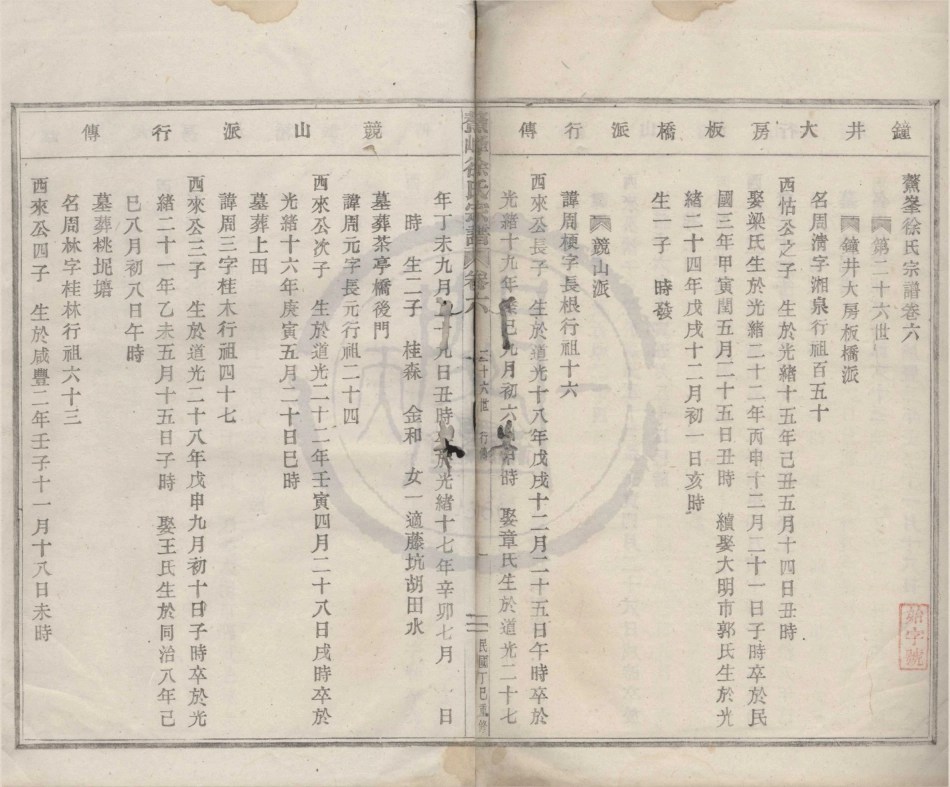 鐘井大房板橋派行傳
鰲峯徐氏宗譜卷六
第二十六世
鐘井大房板橋派
名周濟字湘泉行祖百五十
西怙公之子 生於光緒十五年己丑五月十四日丑時
娶梁氏生於光緒二十二年丙申十二月二十一日子時卒於民
國三年甲寅閏五月二十五日丑時 續娶大明市郭氏生於光
緒二十四年戊戌十二月初一日亥時
生一子 時發
競山派
諱周梗字長根行祖十六
西來公長子 生於道光十八年戊戌十二月二十五日午時卒於
光緒十九年癸巳九月初六日 時 娶章氏生於道光二十七
鰲峰徐氏宗譜 卷六 二十六世 行傳 一 民國丁巳重修
競山派行傳
年丁未九月 十九日丑時卒於光緒十七年辛卯七月 日
時 生二子 桂森 金和 女一適藤坑胡田水
墓葬茶亭橋後門
諱周元字長元行祖二十四
西來公次子 生於道光二十二年壬寅四月二十八日戌時卒於
光緒十六年庚寅五月二十日巳時
墓葬上田
諱周三字桂木行祖四十七
西來公三子 生於道光二十八年戊申九月初十日子時卒於光
緒二十一年乙未五月十五日子時 娶王氏生於同治八年己
巳八月初八日午時
墓葬桃坭塘
名周林字桂林行祖六十三
西來公四子 生於咸豐二年壬子十一月十八日未時
字號